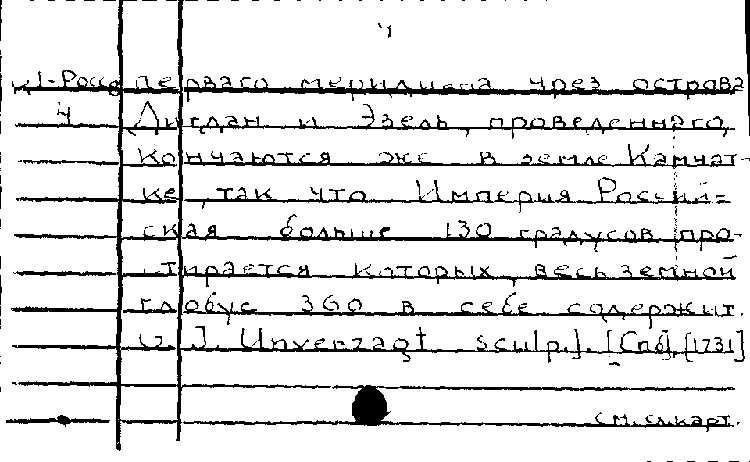 4
1-Росс перваго меридиана чрез острова
4 Дагдан и Эзель, проведеннаго,
Кончаются же в земле Камчат-
ке, так что Империя Россий=
ская больше 130 градусов про-
стирается которых, весь земной
глобус 360 в себе содержит.
G. J. Unverzagt sculp.]. [Спб], [1731]
см. сл. карт.